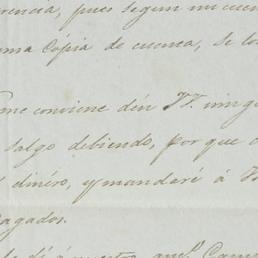 erencia, pues segun mi cuen
una Cópia de cuenta, se los
me conviene dén VV. ning
salgo debiendo, por que
dinéro, y mandaré á
agados.